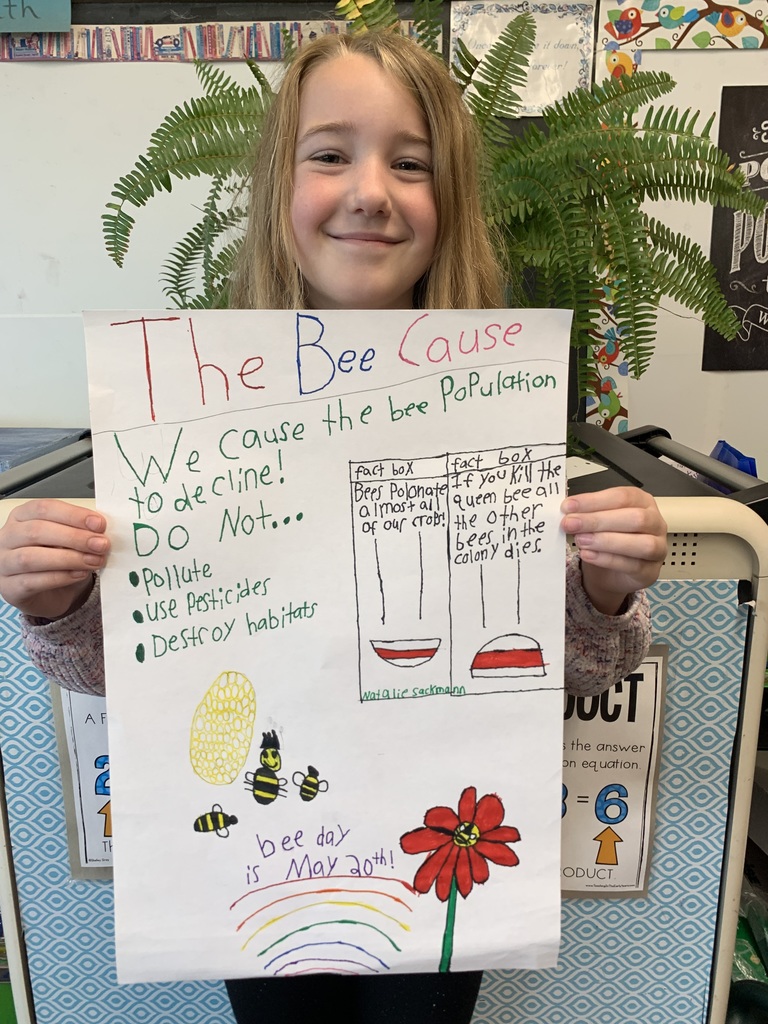 th
The Bee Cause
We cause the bee Population
to decline!
Do Not...
•Pollute
•use Pesticides
•Destroy habitats
fact box
Bees Polonate
almost all
of our crops!
Natalie sackmann
fact box
If you kill the
queen bee all
the other
bees in the
colony dies.
bee day
is May 20th!
A F
2
TH
DUCT
s the answer
on equation.
3 = 6
RODUCT